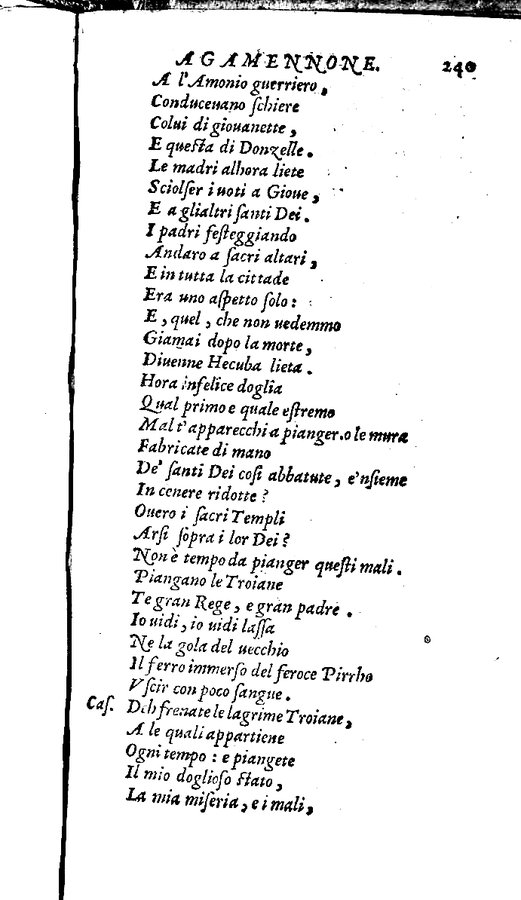 AGAMENNONE. 240
A l'Amonio guerriero,
Conduceuano ſchiere
Colui di giouanette,
E queſta di Donzelle.
Le madri alhora liete
Sciolſer i uoti a Gioue,
E a glialtri ſanti Dei.
I padri feſteggiando
Andaro a ſacri altari,
E in tutta la cittade
Era uno aſpetto ſolo:
E, quel, che non uedemmo
Giamai dopo la morte,
Diuenne Hecuba lieta.
Hora infelice doglia
Qual primo e quale eſtremo
Mal t'apparecchi a pianger. o le mura
Fabricate di mano
De' ſanti Dei coſi abbatute, e'nſieme
In cenere ridotte?
Ouero i ſacri Templi
Arſi ſopra i lor Dei?
Non è tempo da pianger queſti mali.
Piangano le Troiane
Te gran Rege, e gran padre.
Io uidi, io uidi laſſa
Ne la gola del uecchio
Il ferro immerſo del feroce Pirrho
Vſcir con poco ſangue.
Caſ. Deh frenate le lagrime Troiane,
A le quali appartiene
Ogni tempo: e piangete
Il mio doglioſo ſtato,
La mia miſeria, e i mali,